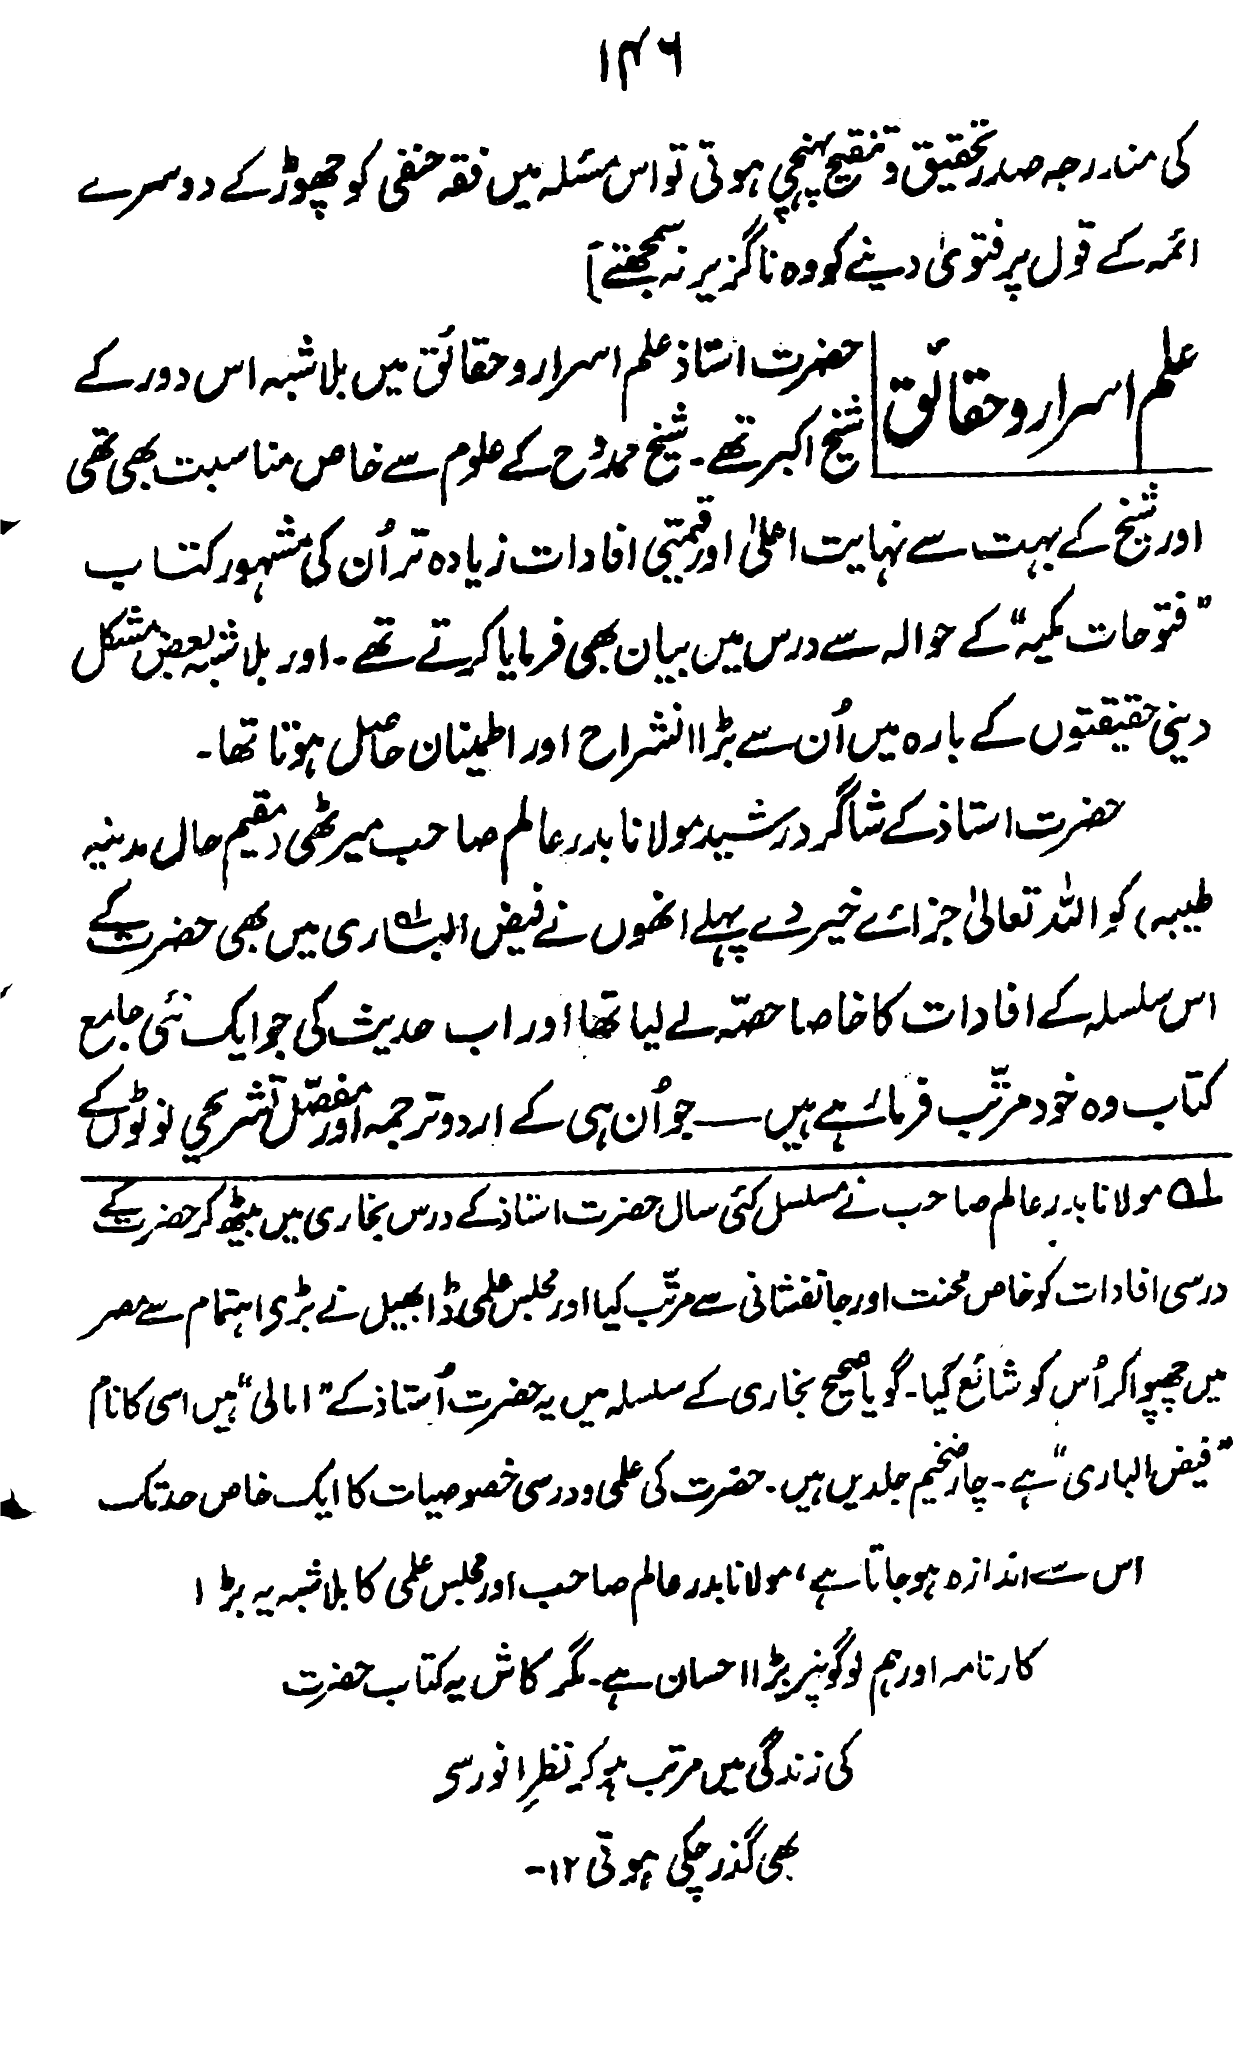 ۱۴۶
کی مندرجہ صدر تحقیق و تنقیح پہنچی ہوتی تو اس مسئلہ میں فقہ حنفی کو چھوڑ کے دوسرے
ائمہ کے قول پر فتویٰ دینے کو وہ ناگزیر نہ سمجھتے]
علم اسرار و حقائق
حضرت استاذ علم اسرار و حقائق میں بلاشبہ اس دور کے
شیخ اکبر تھے۔ شیخ ممدوح کے علوم سے خاص مناسبت بھی تھی
اور شیخ کے بہت سے نہایت اعلیٰ اور قیمتی افادات زیادہ تر اُن کی مشہور کتاب
"فتوحات مکیہ" کے حوالہ سے درس میں بیان بھی فرمایا کرتے تھے۔ اور بلاشبہ بعض مشکل
دینی حقیقتوں کے بارہ میں اُن سے بڑا انشراح اور اطمینان حاصل ہوتا تھا۔
حضرت استاذ کے شاگرد رشید مولانا بدر عالم صاحب میرٹھی (مقیم حال مدینہ
طیبہ) کو اللہ تعالیٰ جزائے خیر دے پہلے انھوں نے فیض الباری۱ میں بھی حضرت کے
اس سلسلہ کے افادات کا خاصا حصّہ لے لیا تھا اور اب حدیث کی جو ایک نئی جامع
کتاب وہ خود مرتّب فرما رہے ہیں — جو اُن ہی کے اردو ترجمہ اور مفصّل تشریحی نوٹوں کے
۱؎ مولانا بدر عالم صاحب نے مسلسل کئی سال حضرت استاذ کے درس بخاری میں بیٹھ کر حضرت کے
درسی افادات کو خاص محنت اور جانفشانی سے مرتّب کیا اور مجلس علمی ڈابھیل نے بڑی اہتمام سے مصر
میں چھپوا کر اُس کو شائع کیا۔ گویا صحیح بخاری کے سلسلہ میں یہ حضرت اُستاذ کے "امالی" ہیں اسی کا نام
"فیض الباری" ہے۔ چار ضخیم جلدیں ہیں۔ حضرت کی علمی و درسی خصوصیات کا ایک خاص حد تک
اس سے اندازہ ہوجاتا ہے، مولانا بدر عالم صاحب اور مجلس علمی کا بلاشبہ یہ بڑا
کارنامہ اور ہم لوگونپر بڑا احسان ہے۔ مگر کاش یہ کتاب حضرت
کی زندگی میں مرتب ہوکر نظرِ انور سے
بھی گذر چکی ہوتی ۱۲-